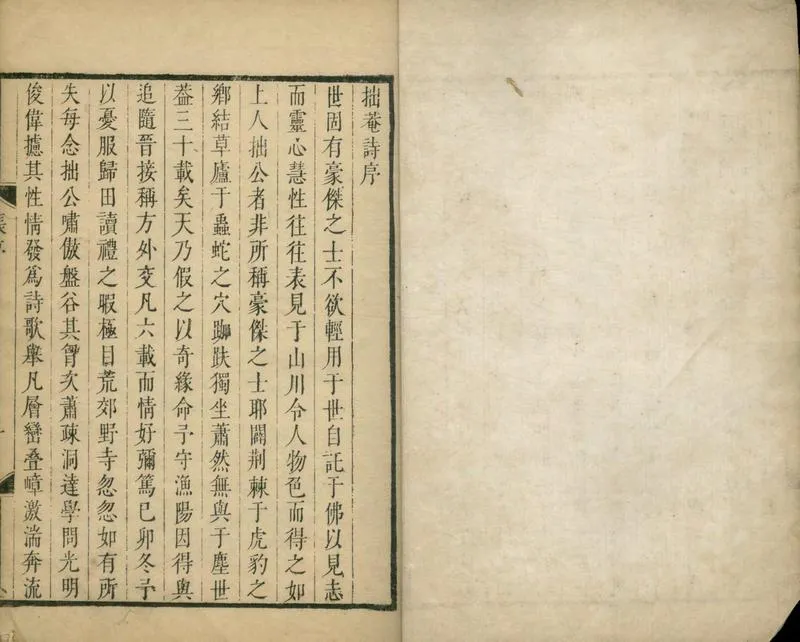 拙菴詩序
世固有豪傑之士不欲輕用于世自託于佛以見志
而靈心慧性往往表見于山川令人物色而得之如
上人拙公者非所稱豪傑之士耶闢荆棘于虎豹之
鄉結草廬于蟲蛇之穴跏趺獨坐蕭然無與于塵世
葢三十載矣天乃假之以奇緣命予守漁陽因得與
追隨晉接稱方外交凡六載而情好彌篤已卯冬予
以憂服歸田讀禮之暇極目荒郊野寺忽忽如有所
失每念拙公嘯傲盤谷其胷次蕭疎洞達學問光明
俊偉攄其性情發爲詩歌舉凡層巒叠嶂激湍奔流